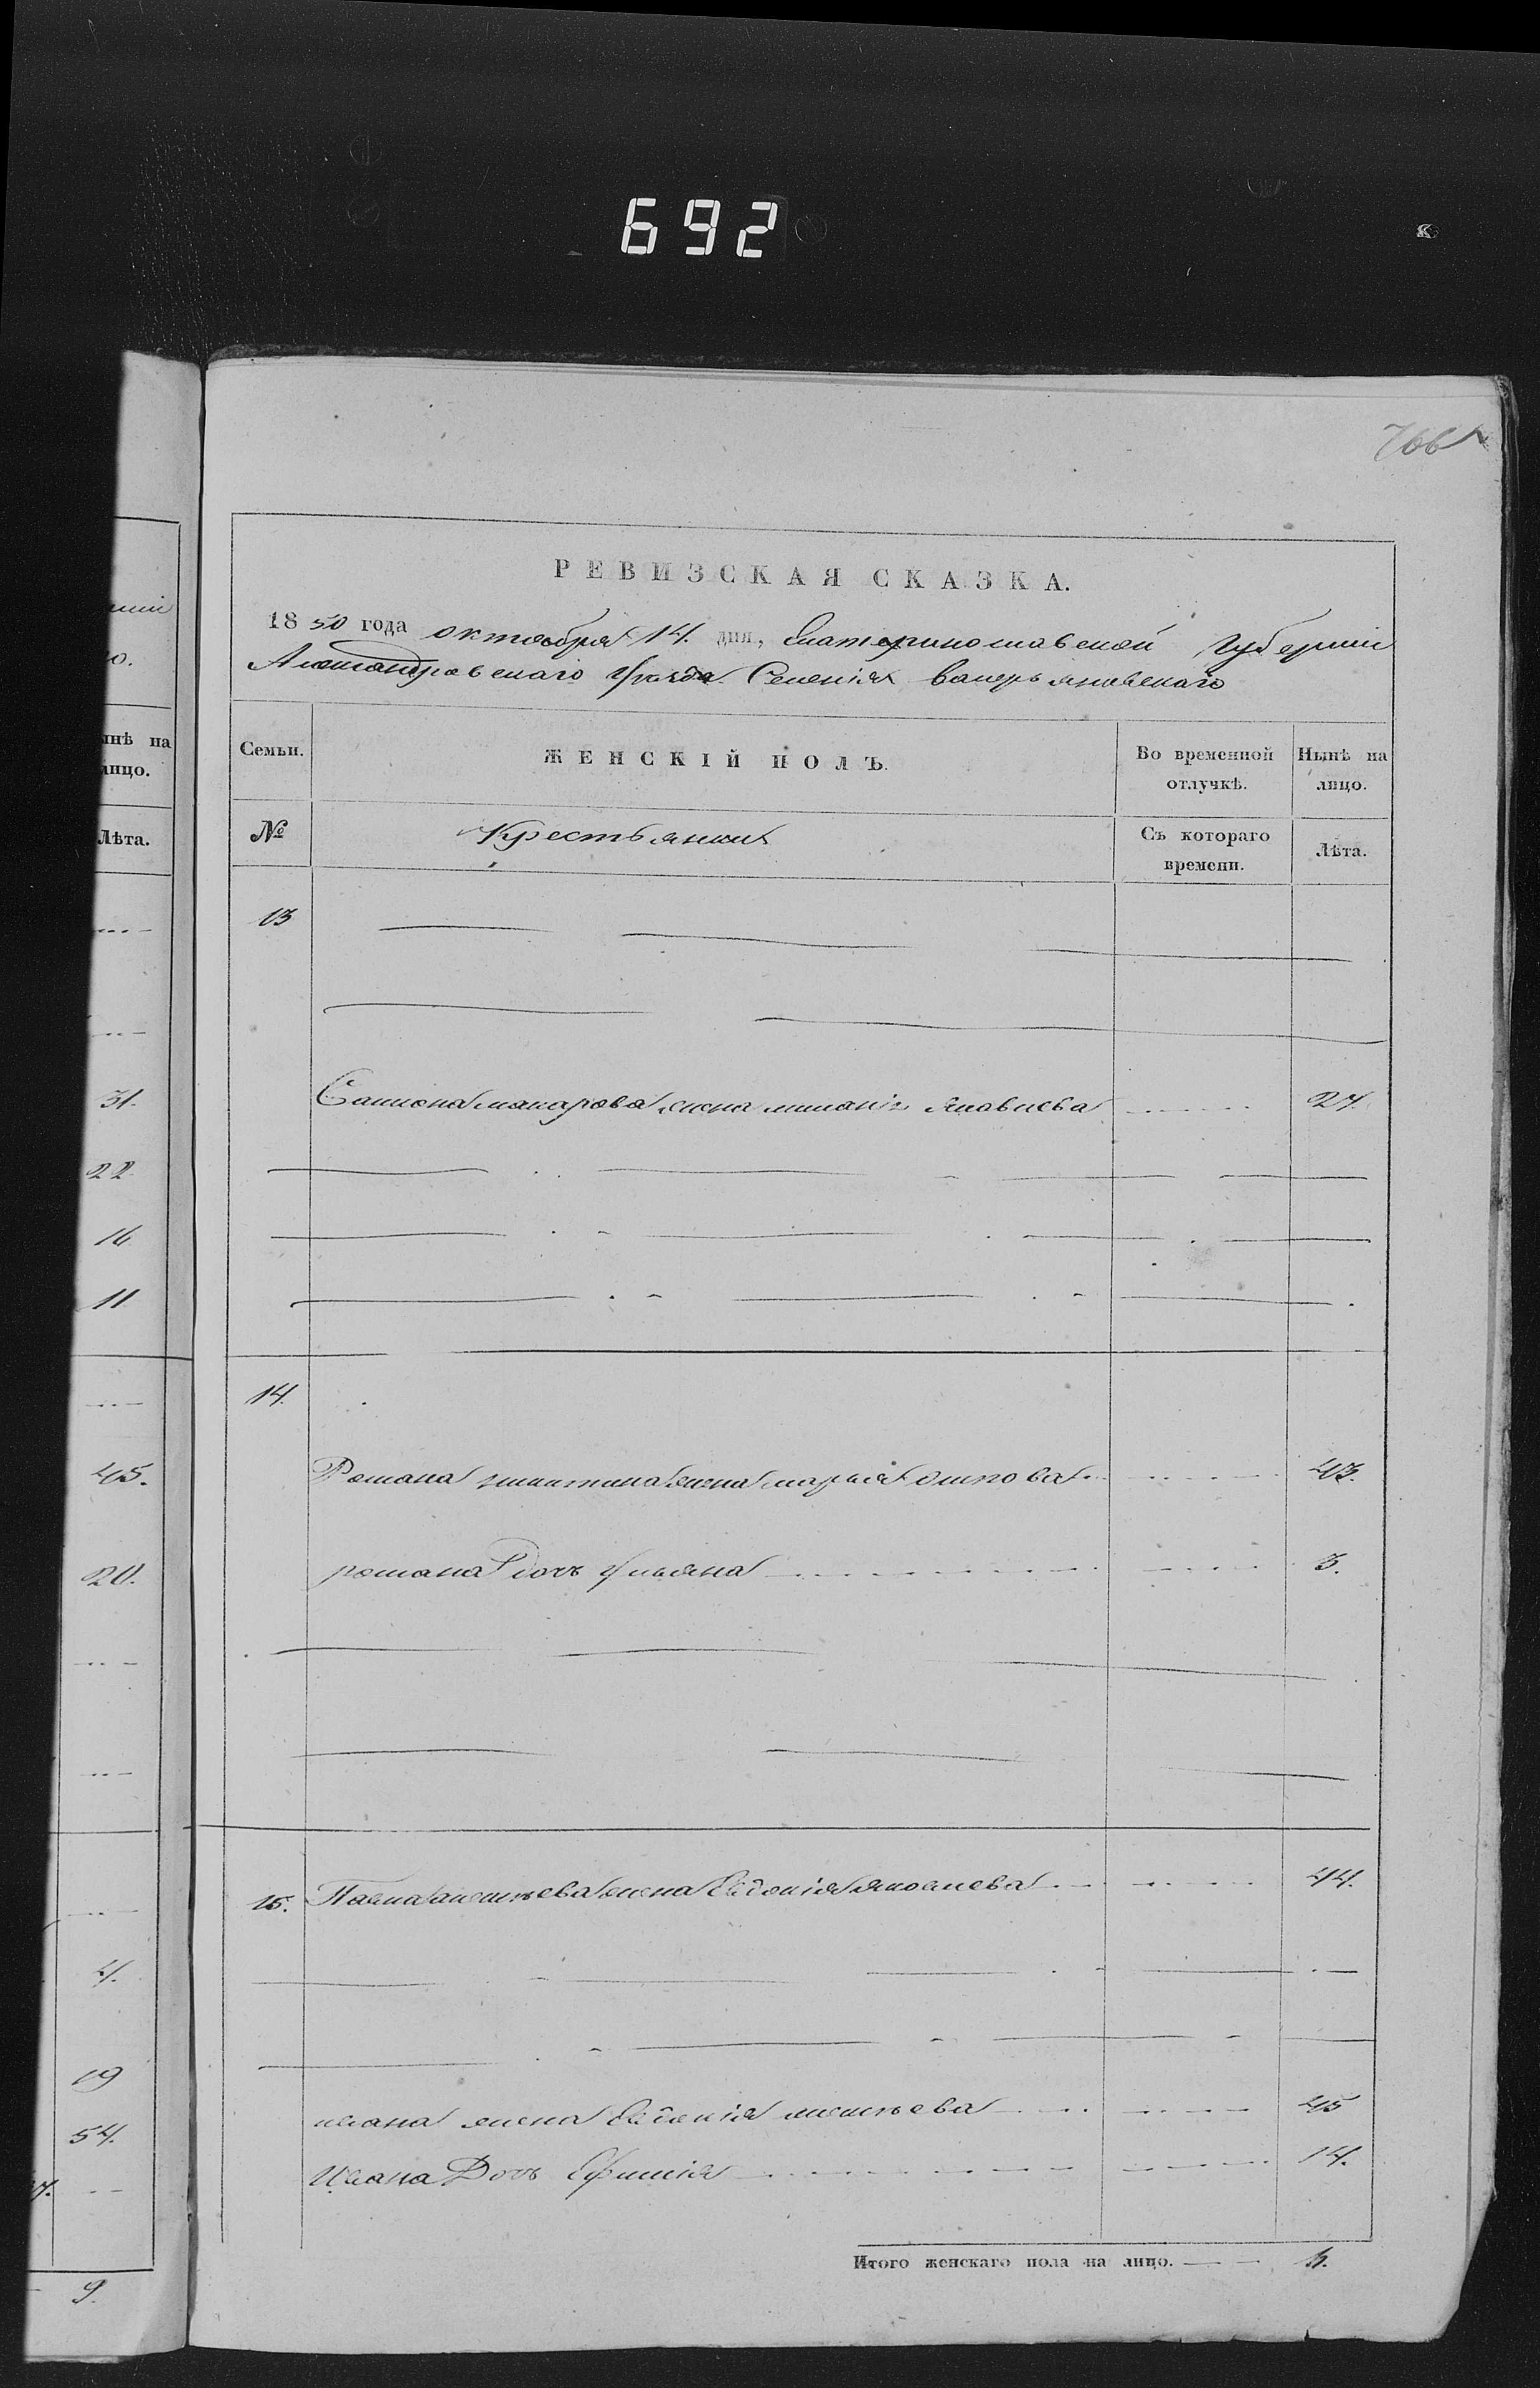 692
766
РЕВИЗСКАЯ СКАЗКА.
1850 года октября 14. дня, Екатеринославской Губерніи
Александровскаго Уѣзда Селенія Валерьяновскаго
Семьи.
ЖЕНСКІЙ ПОЛЪ.
Во временной отлучкѣ.
Нынѣ на лицо.
№
Крестьянки
Съ котораго времени.
Лѣта.
13
Самсона макарова жена миланія Яковлева 27.
14.
Романа жена марья осипова 43.
романа Дочь Ульяна 3.
15. Павла алексѣева жена Евдокія яковлева 44.
ивана жена Евдокія алексѣева 45
Ивана Дочь Ефимія 14.
Итого женскаго пола на лицо.
нѣ на
лицо.
Лѣта.
31.
22
16
11
45.
20.
4.
19
54.
9.